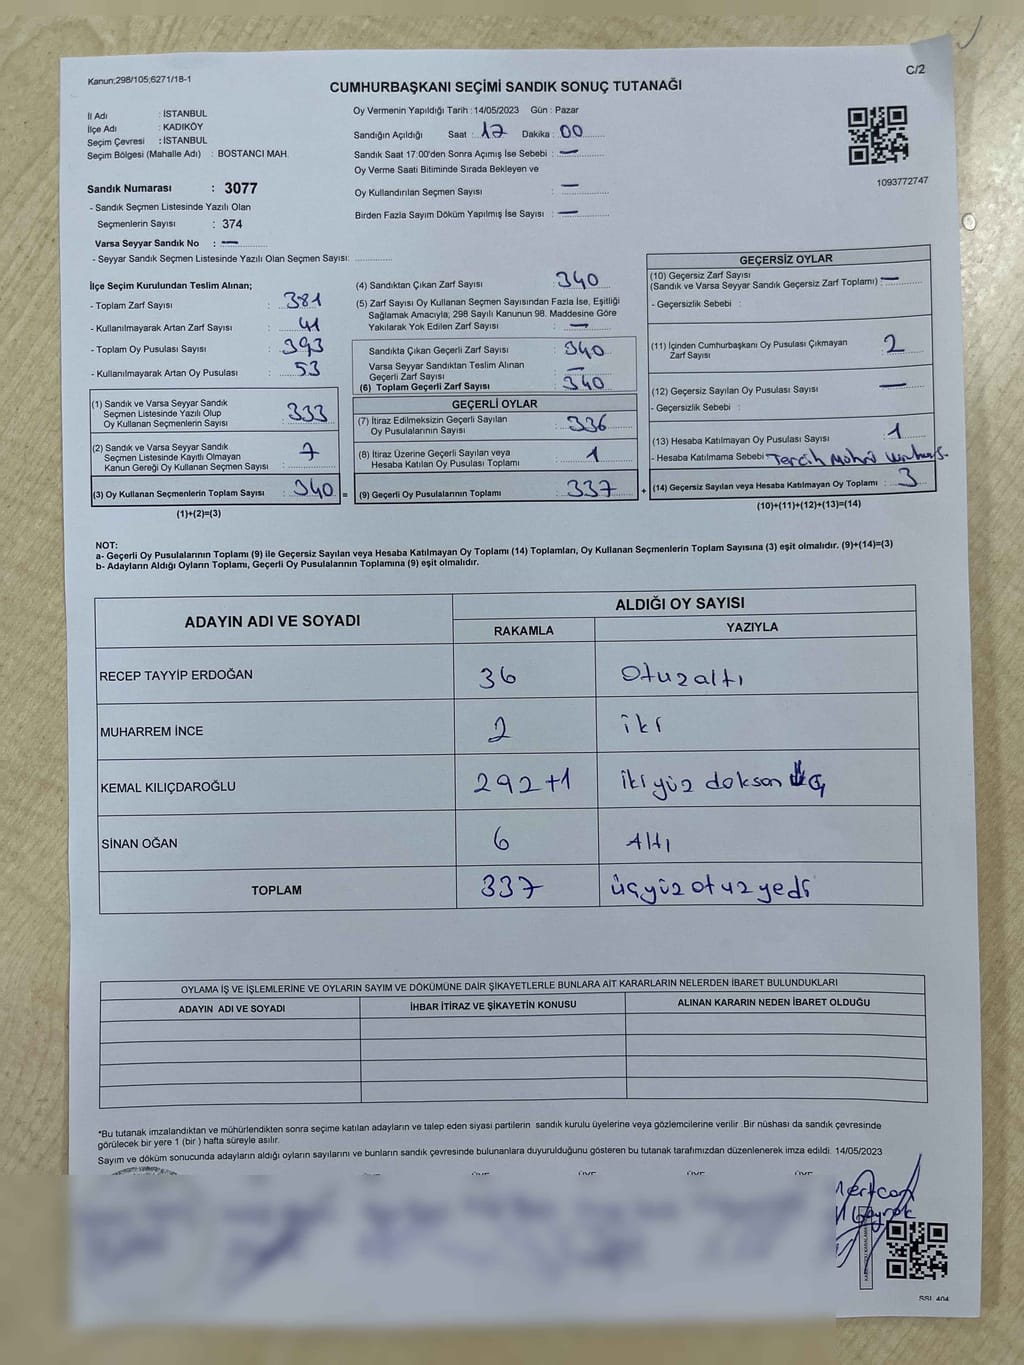 Kanun;298/105;6271/18-1
C/2
CUMHURBAŞKANI SEÇİMİ SANDIK SONUÇ TUTANAĞI
İl Adı : İSTANBUL
İlçe Adı : KADIKÖY
Seçim Çevresi : İSTANBUL
Seçim Bölgesi (Mahalle Adı) : BOSTANCI MAH.
Sandık Numarası : 3077
- Sandık Seçmen Listesinde Yazılı Olan
Seçmenlerin Sayısı : 374
Varsa Seyyar Sandık No : —
- Seyyar Sandık Seçmen Listesinde Yazılı Olan Seçmen Sayısı:
Oy Vermenin Yapıldığı Tarih : 14/05/2023 Gün : Pazar
Sandığın Açıldığı Saat : 17 Dakika : 00
Sandık Saat 17:00'den Sonra Açımış İse Sebebi : —
Oy Verme Saati Bitiminde Sırada Bekleyen ve
Oy Kullandırılan Seçmen Sayısı : —
Birden Fazla Sayım Döküm Yapılmış İse Sayısı : —
1093772747
İlçe Seçim Kurulundan Teslim Alınan;
- Toplam Zarf Sayısı : 381
- Kullanılmayarak Artan Zarf Sayısı : 41
- Toplam Oy Pusulası Sayısı : 393
- Kullanılmayarak Artan Oy Pusulası : 53
(1) Sandık ve Varsa Seyyar Sandık
Seçmen Listesinde Yazılı Olup
Oy Kullanan Seçmenlerin Sayısı : 333
(2) Sandık ve Varsa Seyyar Sandık
Seçmen Listesinde Kayıtlı Olmayan
Kanun Gereği Oy Kullanan Seçmen Sayısı : 7
(3) Oy Kullanan Seçmenlerin Toplam Sayısı : 340 =
(1)+(2)=(3)
(4) Sandıktan Çıkan Zarf Sayısı : 340
(5) Zarf Sayısı Oy Kullanan Seçmen Sayısından Fazla İse, Eşitliği
Sağlamak Amacıyla, 298 Sayılı Kanunun 98. Maddesine Göre
Yakılarak Yok Edilen Zarf Sayısı : —
Sandıkta Çıkan Geçerli Zarf Sayısı : 340
Varsa Seyyar Sandıktan Teslim Alınan
Geçerli Zarf Sayısı : —
(6) Toplam Geçerli Zarf Sayısı : 340
GEÇERLİ OYLAR
(7) İtiraz Edilmeksizin Geçerli Sayılan
Oy Pusulalarının Sayısı : 336
(8) İtiraz Üzerine Geçerli Sayılan veya
Hesaba Katılan Oy Pusulası Toplamı : 1
(9) Geçerli Oy Pusulalarının Toplamı : 337 +
GEÇERSİZ OYLAR
(10) Geçersiz Zarf Sayısı
(Sandık ve Varsa Seyyar Sandık Geçersiz Zarf Toplamı) : —
- Geçersizlik Sebebi :
(11) İçinden Cumhurbaşkanı Oy Pusulası Çıkmayan
Zarf Sayısı : 2
(12) Geçersiz Sayılan Oy Pusulası Sayısı : —
- Geçersizlik Sebebi :
(13) Hesaba Katılmayan Oy Pusulası Sayısı : 1
- Hesaba Katılmama Sebebi Tercih Mührü
(14) Geçersiz Sayılan veya Hesaba Katılmayan Oy Toplamı : 3
(10)+(11)+(12)+(13)=(14)
NOT:
a- Geçerli Oy Pusulalarının Toplamı (9) ile Geçersiz Sayılan veya Hesaba Katılmayan Oy Toplamı (14) Toplamları, Oy Kullanan Seçmenlerin Toplam Sayısına (3) eşit olmalıdır. (9)+(14)=(3)
b- Adayların Aldığı Oyların Toplamı, Geçerli Oy Pusulalarının Toplamına (9) eşit olmalıdır.
ADAYIN ADI VE SOYADI ALDIĞI OY SAYISI
RAKAMLA YAZIYLA
RECEP TAYYİP ERDOĞAN 36 otuzaltı
MUHARREM İNCE 2 iki
KEMAL KILIÇDAROĞLU 292+1 ikiyüz doksan üç
SİNAN OĞAN 6 Altı
TOPLAM 337 üçyüz otuz yedi
OYLAMA İŞ VE İŞLEMLERİNE VE OYLARIN SAYIM VE DÖKÜMÜNE DAİR ŞİKAYETLERLE BUNLARA AİT KARARLARIN NELERDEN İBARET BULUNDUKLARI
ADAYIN ADI VE SOYADI İHBAR İTİRAZ VE ŞİKAYETİN KONUSU ALINAN KARARIN NEDEN İBARET OLDUĞU
*Bu tutanak imzalandıktan ve mühürlendikten sonra seçime katılan adayların ve talep eden siyasi partilerin sandık kurulu üyelerine veya gözlemcilerine verilir .Bir nüshası da sandık çevresinde
görülecek bir yere 1 (bir ) hafta süreyle asılır.
Sayım ve döküm sonucunda adayların aldığı oyların sayılarını ve bunların sandık çevresinde bulunanlara duyurulduğunu gösteren bu tutanak tarafımızdan düzenlenerek imza edildi. 14/05/2023
ÜYE ÜYE ÜYE ÜYE
Mertcan
SSL 404